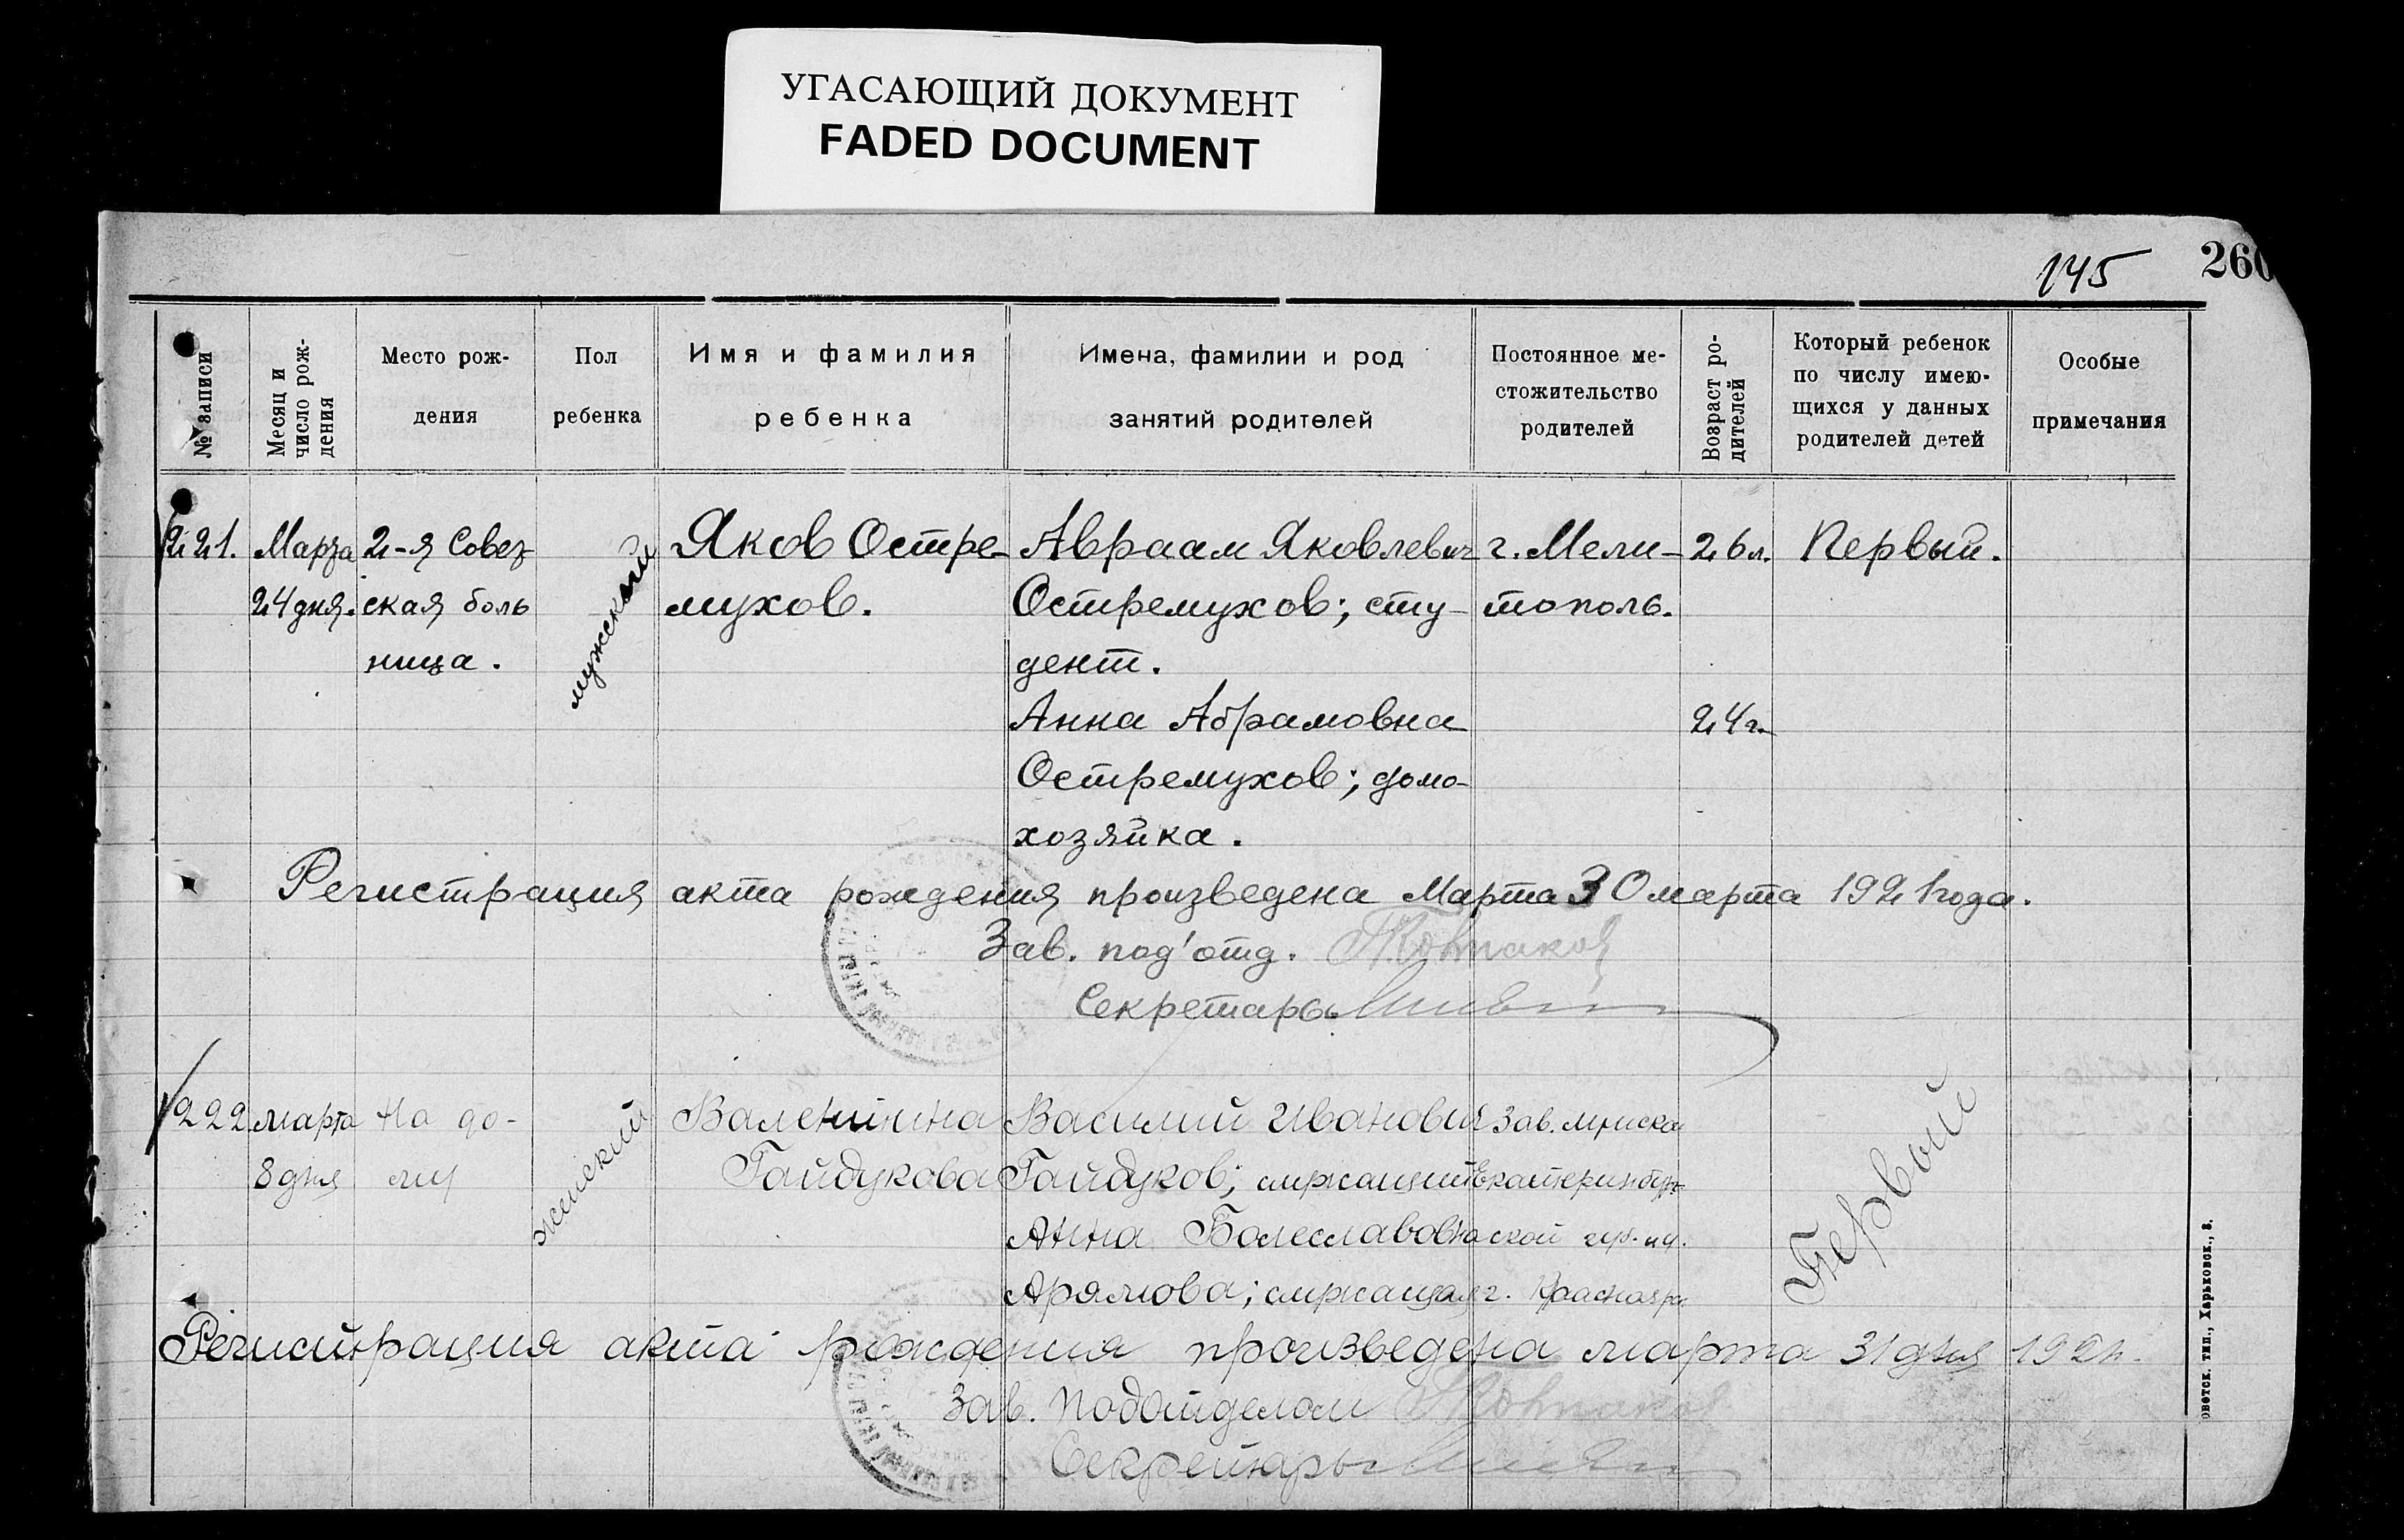 УГАСАЮЩИЙ ДОКУМЕНТ
FADED DOCUMENT
145
260
№ записи
Месяц и
число рож-
дения
Место рож-
дения
Пол
ребенка
Имя и фамилия
ребенка
Имена, фамилии и род
занятий родителей
Постоянное ме-
стожительство
родителей
Возраст ро-
дителей
Который ребенок
по числу имею-
щихся у данных
родителей детей
Особые
примечания
221.
Марта
24 дня.
2-я Совет
ская боль
ница.
мужской
Яков Остре-
мухов.
Авраам Яковлевич
Остремухов; сту-
дент.
Анна Абрамовна
Остремухов; домо-
хозяйка.
г. Мели-
тополь.
26 л.
24 г.
Первый.
Регистрация акта рождения произведена Марта 30 марта 1921 года.
Зав. под'отд.
Секретарь
222
марта
8 дня
На до-
му
женский
Валентина
Гайдукова
Василий Иванович
Гайдуков; служащий
Анна Болеславовна
Арямова; служащая
Зав.
Екатеринбург-
ской губ.
г.
Первый
Регистрация акта рождения произведена марта 31 дня 1921 г.
Зав. Подотделом
Секретарь
оветск. тип., Харьковск., 8.